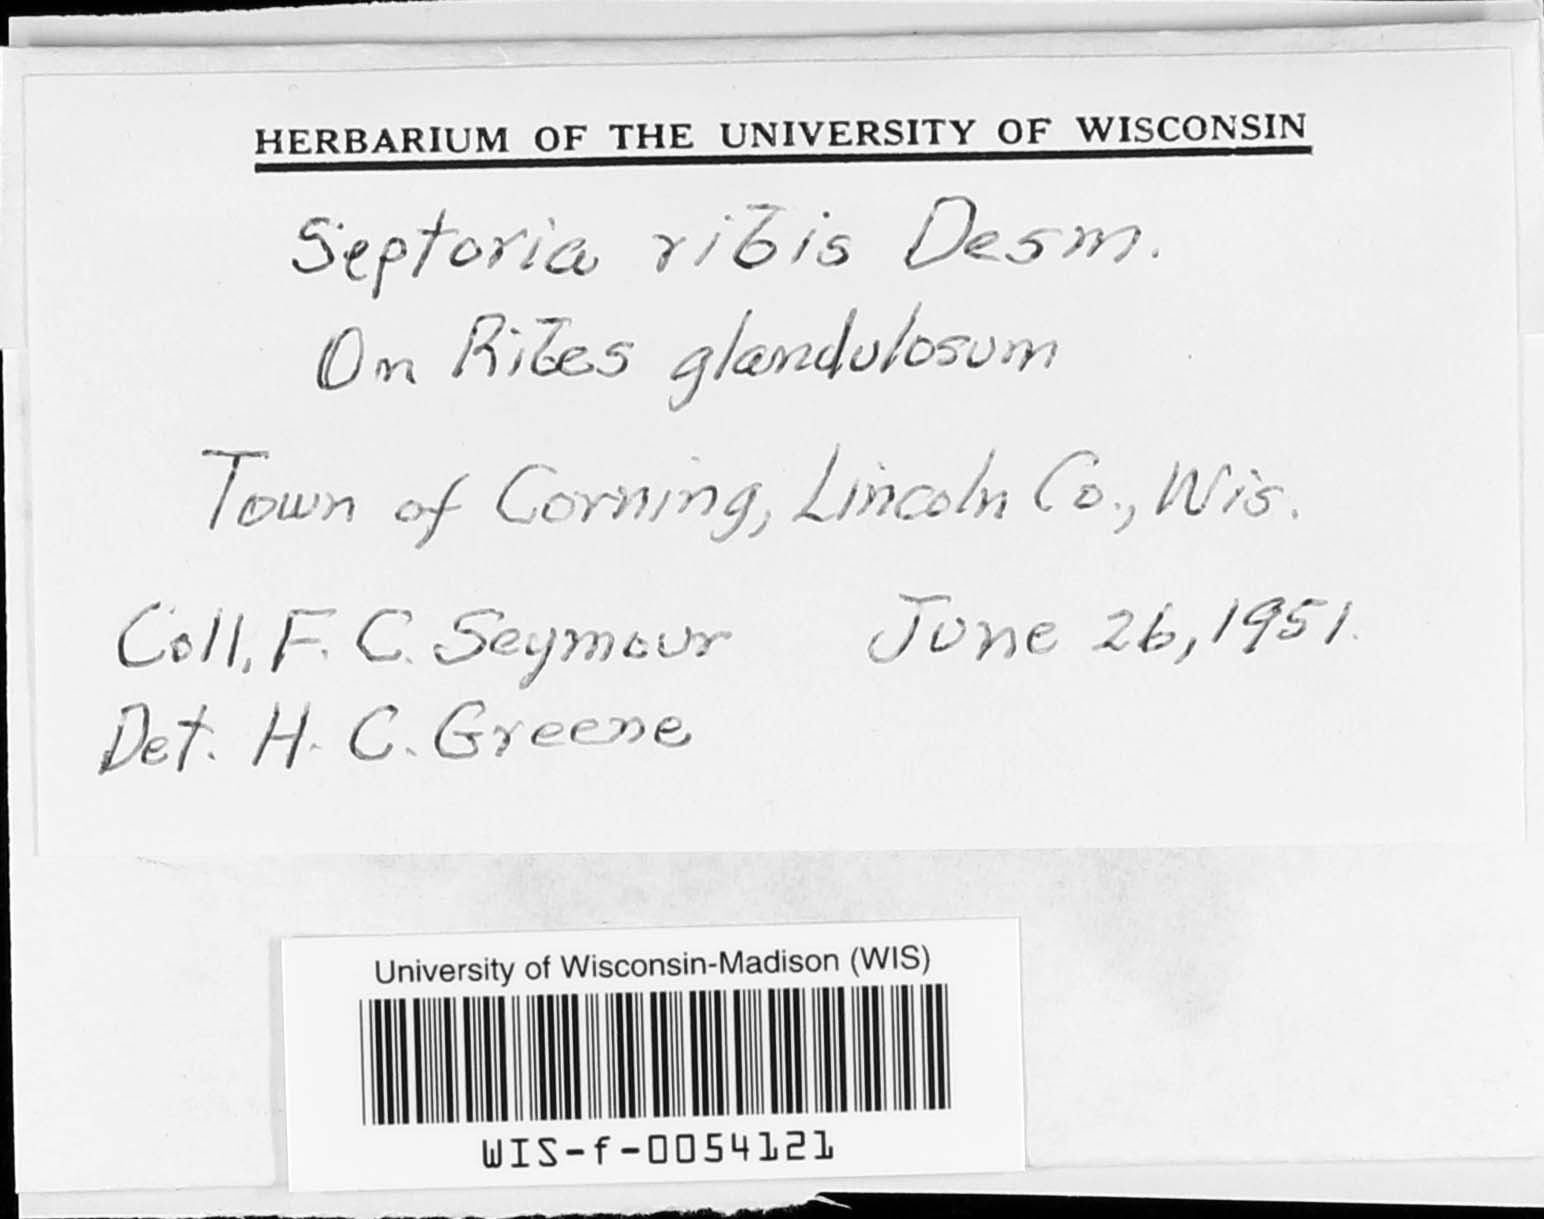 HERBARIUM OF THE UNIVERSITY OF WISCONSIN
Septoria ribis Desm.
On Ribes glandulosum
Town of Corning, Lincoln Co., Wis.
Coll. F. C. Seymour June 26, 1951.
Det. H. C. Greene
University of Wisconsin-Madison (WIS)
WIS-f-0054121